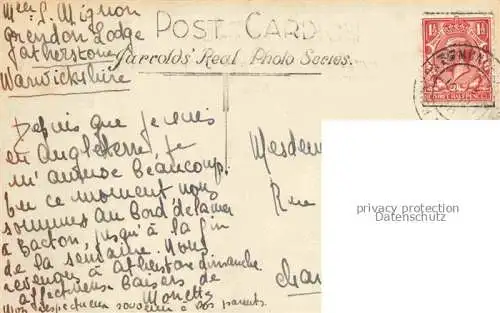 Melle S. Mignon
Grendon Lodge
Atherstone
Warwickshire
POST CARD
Jarrolds' Real Photo Series.
Depuis que je suis
en Angleterre, je
m'amuse beaucoup.
En ce moment nous
sommes au bord de la mer
à Bacton, jusqu'à la fin
de la semaine. Nous
revenons à Atherstone dimanche.
affectueux Baisers de
Monette
Mon respectueux souvenir à vos parents.
Mesdem
Rue
Cha
privacy protection
Datenschutz